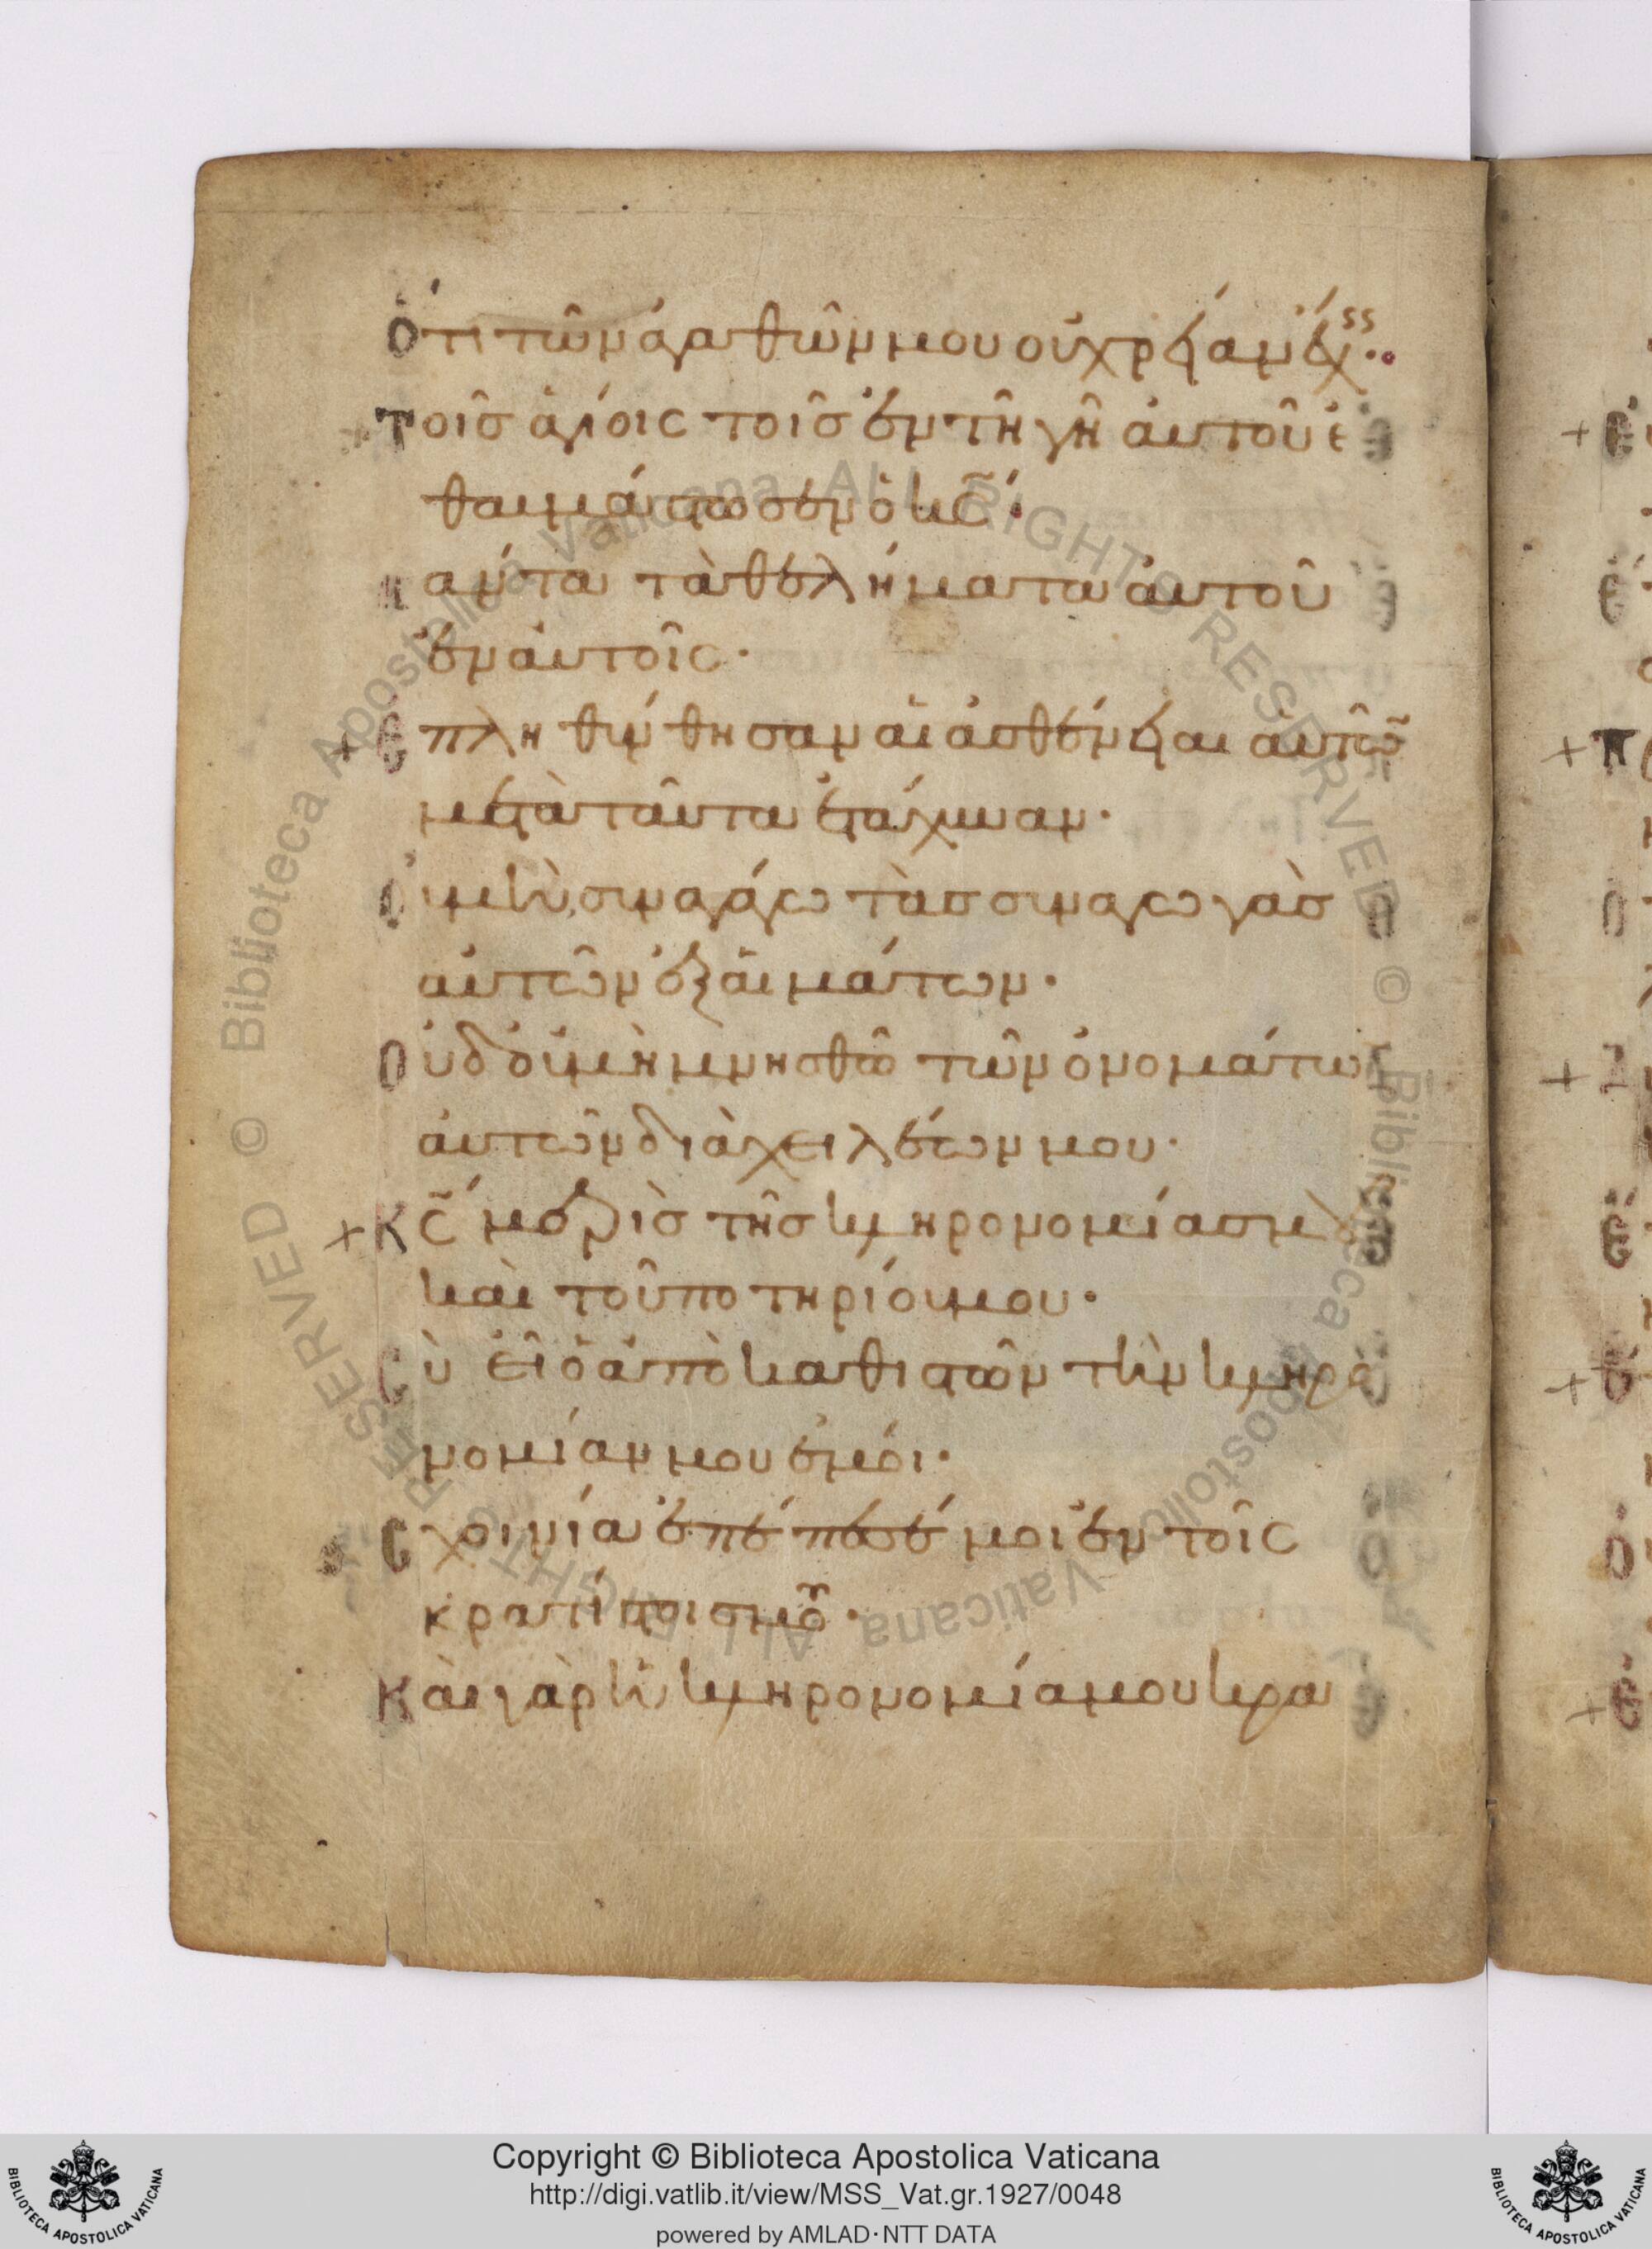 Ὅτι τῶν ἀγαθῶν μου οὐ χρείαν ἔχεις
+ Τοῖς ἁγίοις τοῖς ἐν τῆ γῆ ἀυτοῦ ἐ
θαυμάστωσεν ὁ κ̅ς̅·
Πάντα τὰ θελήματα ἀυτοῦ
ἐν ἀυτοῖς·
+ Ἐπληθύνθησαν αἱ ἀσθένειαι ἀυτῶ̅
μετὰ ταῦτα ἐτάχυναν·
Οὐ μὴ συναγάγω τὰς συναγωγὰς
αὐτῶν ἐξ αἱμάτων·
Οὐδ' οὐ μὴ μνησθῶ τῶν ὀνομάτων
ἀυτῶν διὰ χειλέων μου·
+ Κ̅ς̅ μερὶς τῆς κληρονομίας μου
καὶ τοῦ ποτηρίου μου·
Σὺ εἶ ὁ ἀποκαθιστῶν τὴν κληρο
νομίαν μου ἐμοί·
Σχοινία ἐπέπεσέ μοι ἐν τοῖς
κρατίστοις μου·
Καὶ γὰρ ἡ κληρονομία μου κρα
Copyright © Biblioteca Apostolica Vaticana
http://digi.vatlib.it/view/MSS_Vat.gr.1927/0048
powered by AMLAD·NTT DATA
BIBLIOTECA APOSTOLICA VATICANA
BIBLIOTECA APOSTOLICA VATICANA
© Biblioteca Apostolica Vaticana ALL RIGHTS RESERVED © Biblioteca Apostolica Vaticana ALL RIGHTS RESERVED